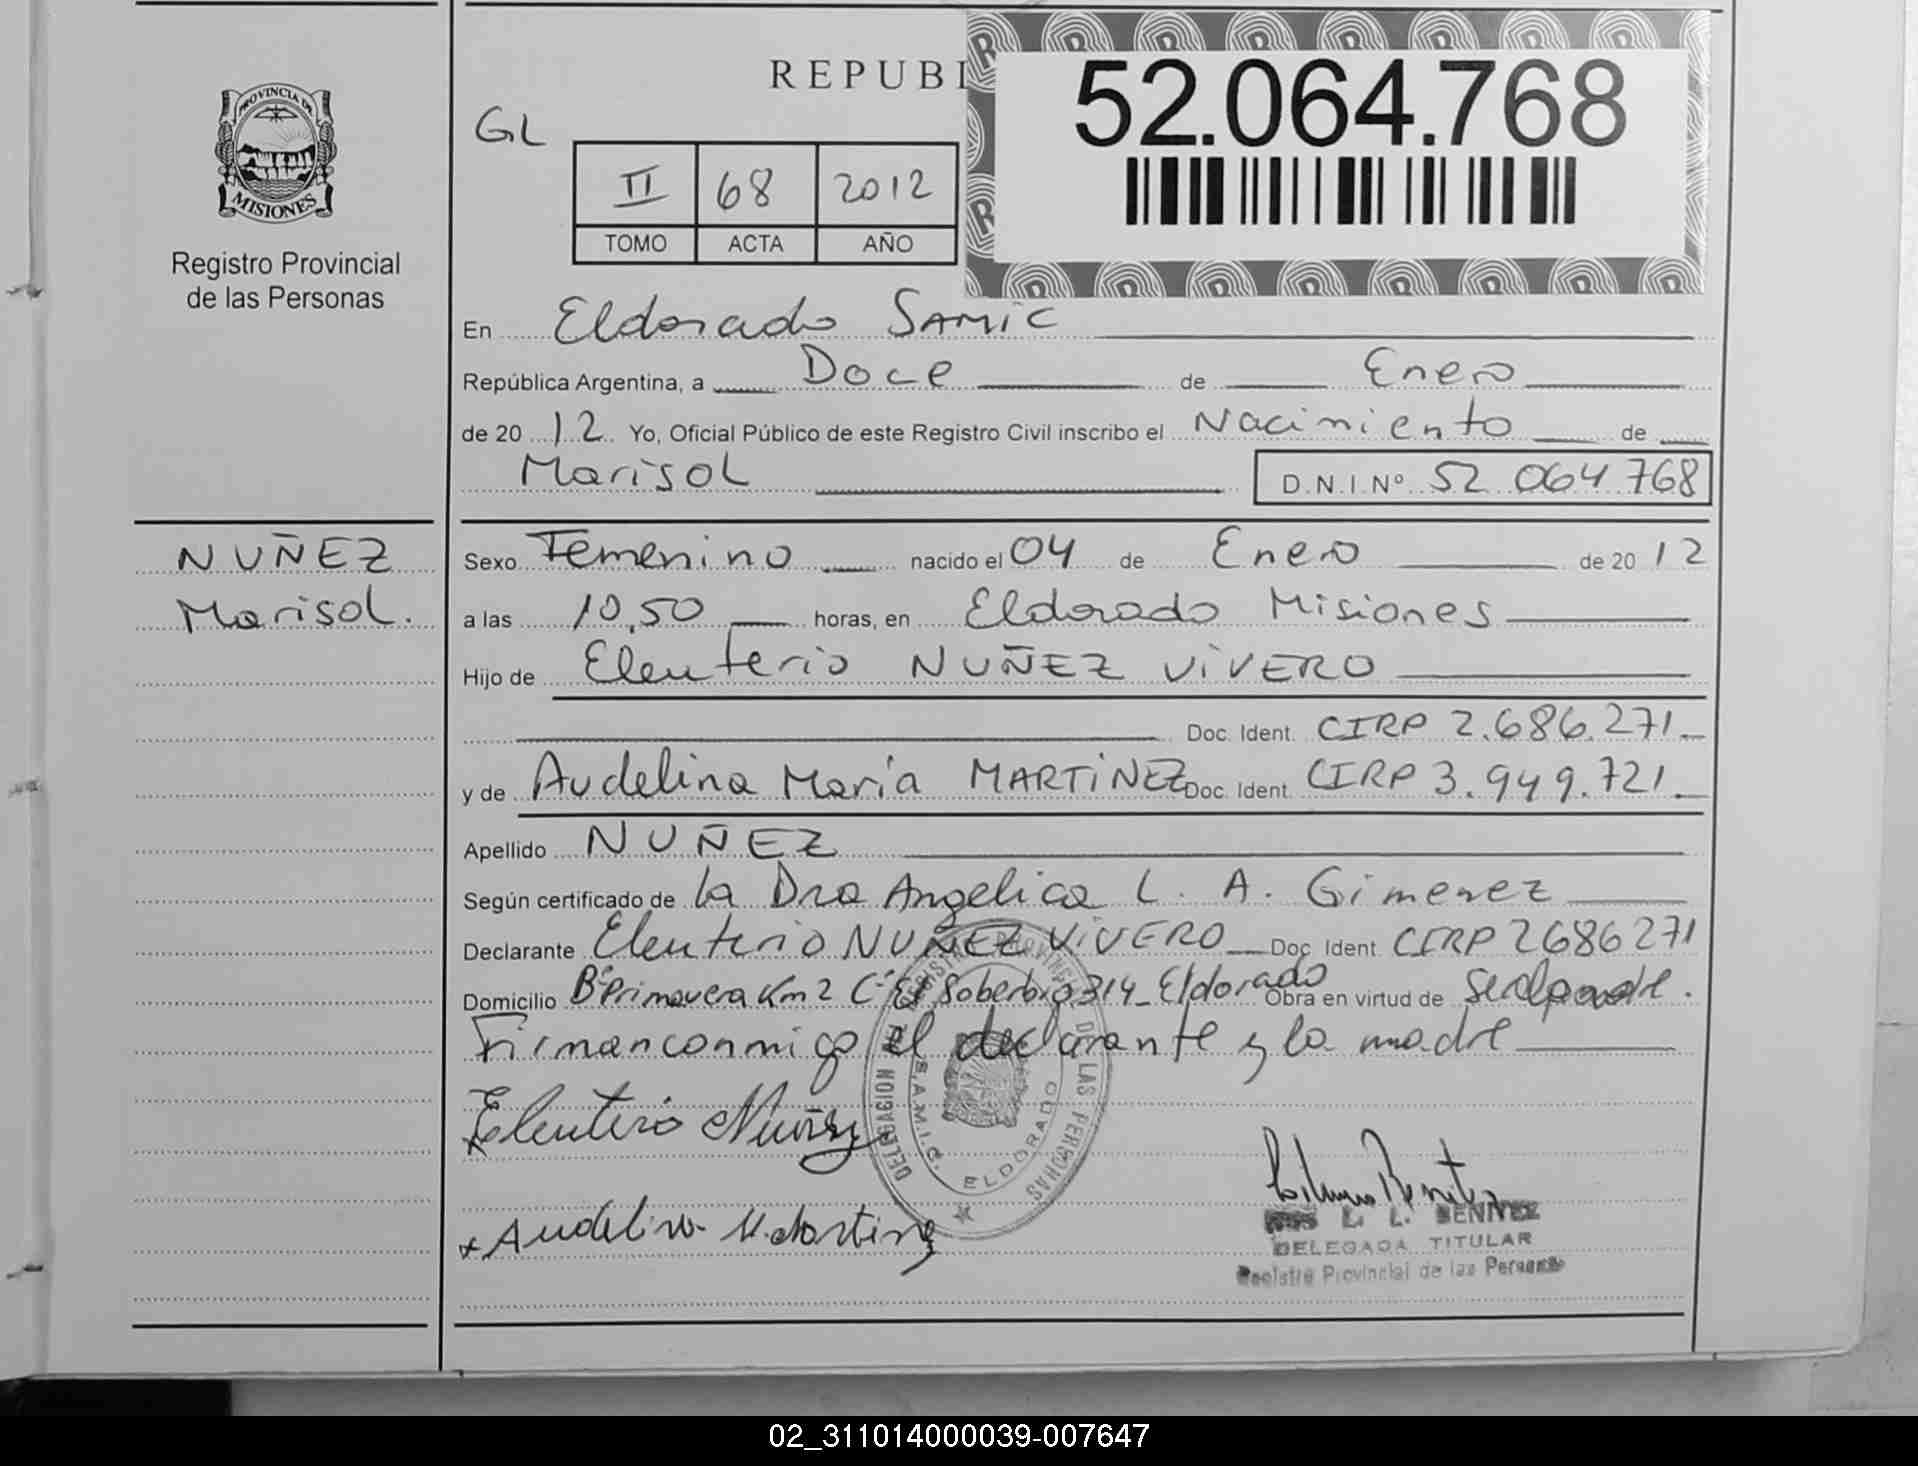 PROVINCIA DE
MISIONES
Registro Provincial
de las Personas
NUÑEZ
Marisol.
REPUBL
52.064.768
GL
II 68 2012
TOMO ACTA AÑO
En Eldorado SAMIC
República Argentina, a Doce de Enero
de 2012 Yo, Oficial Público de este Registro Civil inscribo el Nacimiento de
Marisol D.N.I.Nº 52 064 768
Sexo Femenino nacido el 04 de Enero de 2012
a las 10,50 horas, en Eldorado Misiones
Hijo de Eleuterio NUÑEZ VIVERO
Doc. Ident. CIRP 2.686.271
y de Audelina María MARTINEZ Doc. Ident. CIRP 3.949.721
Apellido NUÑEZ
Según certificado de la Dra Angelica L. A. Gimenez
Declarante Eleuterio NUÑEZ VIVERO Doc. Ident. CIRP 2686271
Domicilio Bº Primavera Km 2 C El Soberbio 314 - Eldorado Obra en virtud de ser padre.
Firman conmigo el declarante y la madre
Eleuterio Nuñez
DELEGACION REGISTRO PROVINCIAL DE LAS PERSONAS
S.A.M.I.C.
ELDORADO
x Audelina M. Martinez
Benitez
L. L. BENITEZ
DELEGADA TITULAR
Registro Provincial de las Personas
02_311014000039-007647